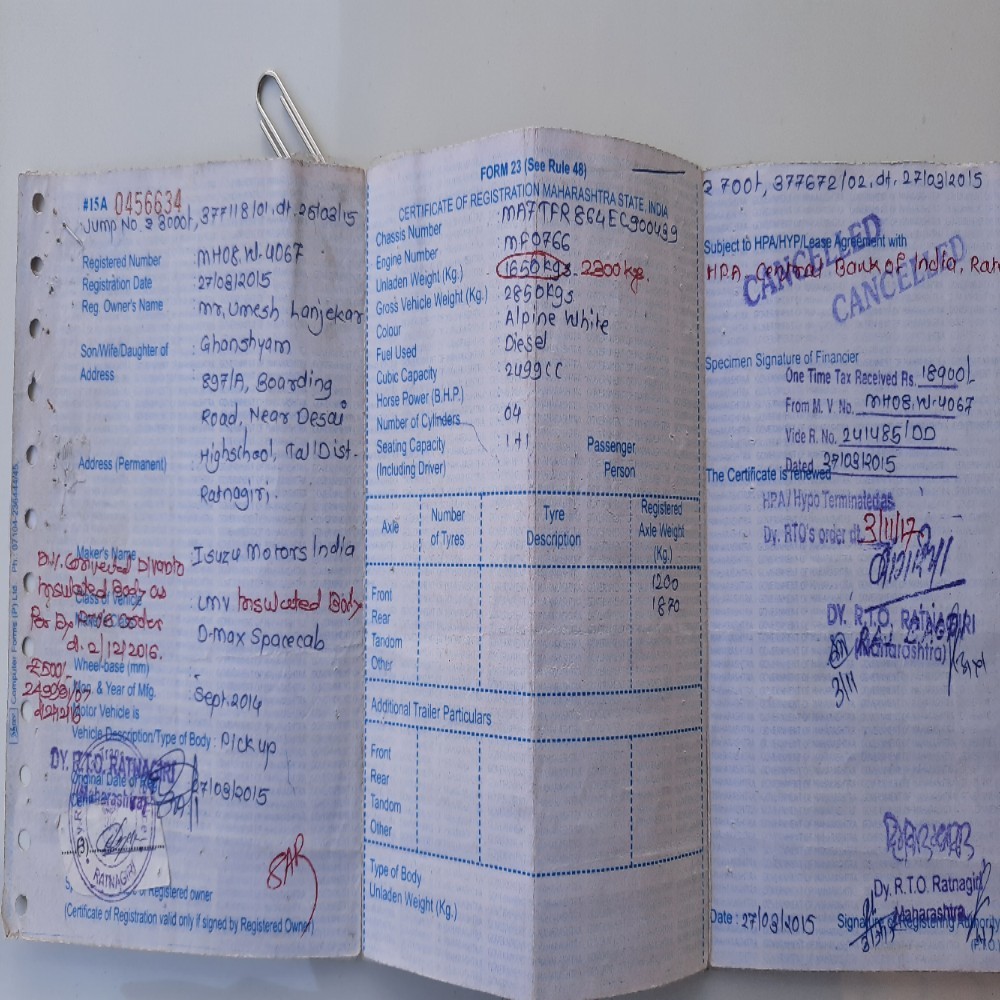 #15A 0456634
Jump No. 8000/, 377118/01.dt. 26/03/15
Registered Number : MH08.W.4067
Registration Date : 27/03/2015
Reg. Owner's Name : Mr. Umesh Lanjekar
Son/Wife/Daughter of : Ghanshyam
Address : 897/A, Boarding
Road, Near Desai
Address (Permanent) : Highschool, Tal/Dist-
Ratnagiri.
Maker's Name : Isuzu Motors India
Insulated Body as
Class of Vehicle : LMV Insulated Body
D-max Spacecab
d. 2/12/2016.
Wheel-base (mm)
Mon. & Year of Mfg. : Sept. 2014
Motor Vehicle is
Vehicle Description/Type of Body : Pick up
DY. R.T.O. RATNAGIRI
Original Date of 27/03/2015
(Maharashtra)
RATNAGIRI
Registered owner
(Certificate of Registration valid only if signed by Registered Owner)
FORM 23 (See Rule 48)
CERTIFICATE OF REGISTRATION MAHARASHTRA STATE, INDIA
Chassis Number : MA7TFR864EC900499
Engine Number : MF0766
Unladen Weight (Kg.) : 1650 Kgs. 2300 kg.
Gross Vehicle Weight (Kg.) : 2850 Kgs
Colour : Alpine White
Fuel Used : Diesel
Cubic Capacity : 2499 CC
Horse Power (B.H.P.)
Number of Cylinders : 04
Seating Capacity : 1+1 Passenger
(Including Driver) Person
Axle Number of Tyres Tyre Description Registered Axle Weight (Kg.)
Front 1200
Rear 1870
Tandom
Other
Additional Trailer Particulars
Front
Rear
Tandom
Other
Type of Body
Unladen Weight (Kg.)
2700/, 377672/02.dt. 27/03/2015
Subject to HPA/HYP/Lease Agreement with
HPA Central Bank of India,
CANCELLED
CANCELLED
Specimen Signature of Financier
One Time Tax Received Rs. 18900/-
From M. V. No. MH08.W.4067
Vide R. No. 241485/DD
Dated 27/03/2015
The Certificate is renewed
HPA / Hypo Terminated as
Dy. RTO's order dt. 3/11/17
DY. R.T.O. RATNAGIRI
(Maharashtra)
3/11
Dy. R.T.O. Ratnagiri
Maharashtra
Date : 27/03/2015 Signature of Registering Authority